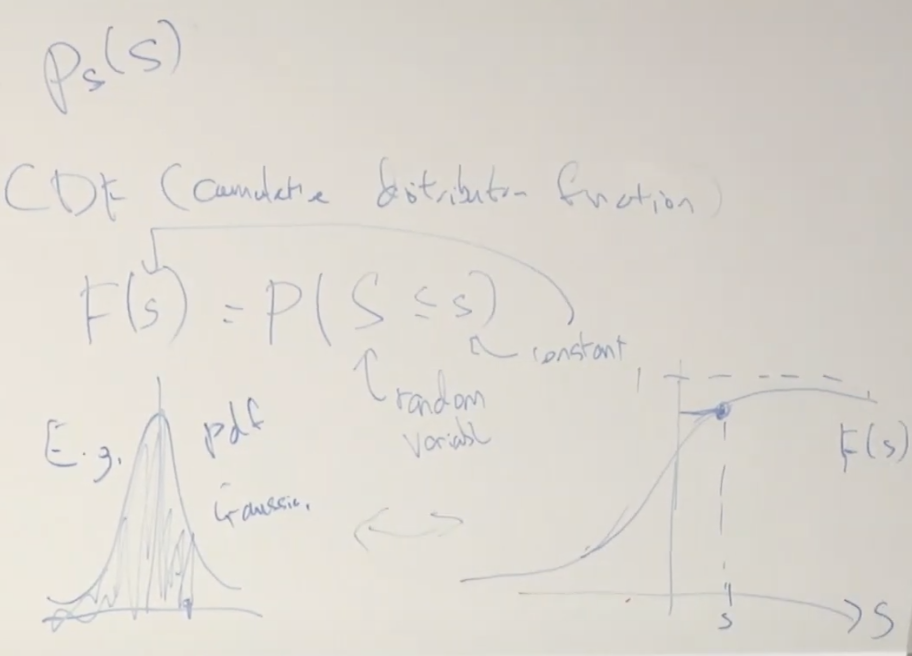 Ps(S)
CDF (Cumulative distribution function)
F(s) = P(S ≤ s)
constant
random
variabl
E.g.
pdf
Gaussia.
1
F(s)
s
S